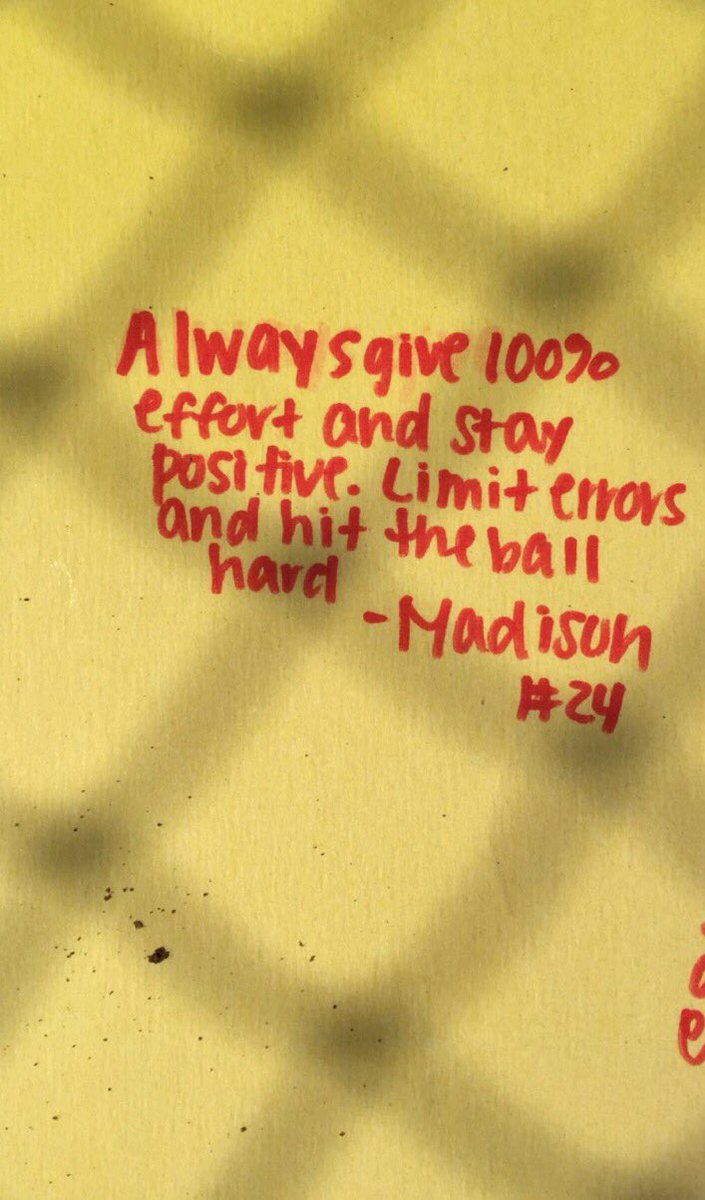 Always give 100%
effort and stay
positive. Limit errors
and hit the ball
hard
-Madison
#24